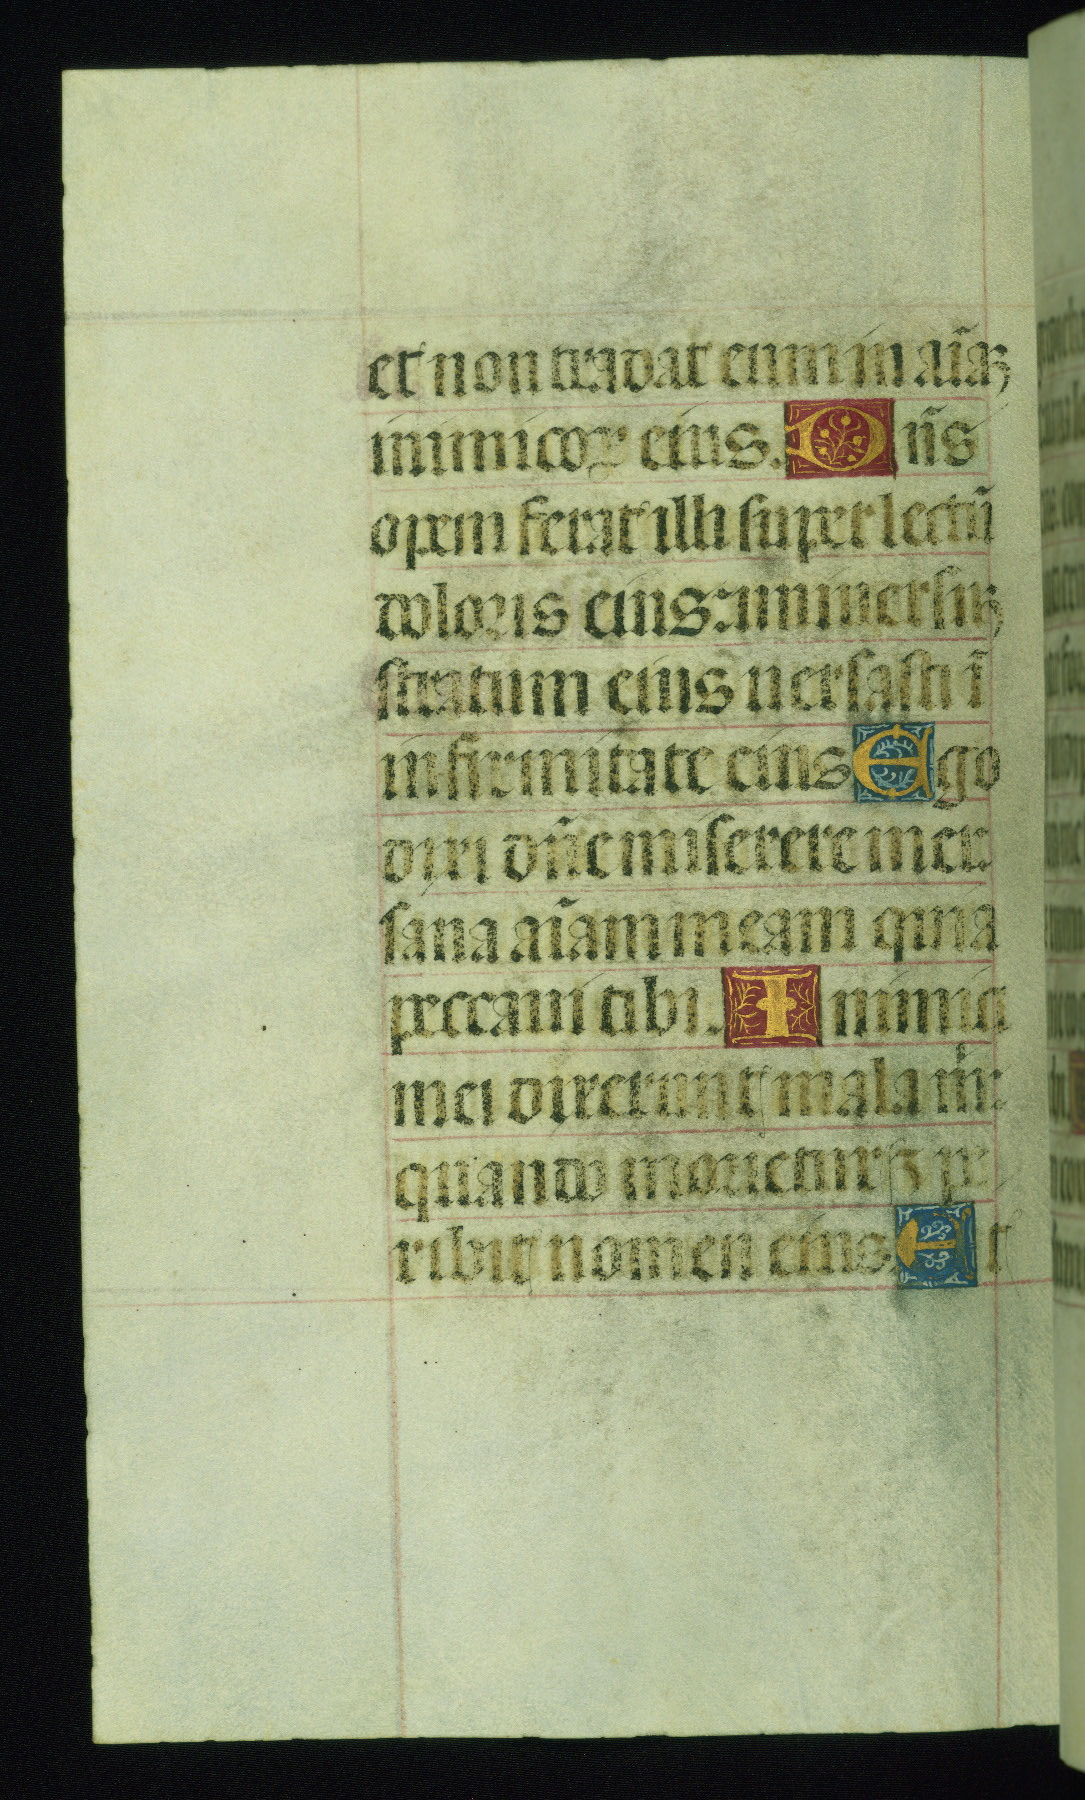 et non tradat eum in aīaꝫ
inimicoꝝ eius. Dn̄s
opem ferat illi super lectū
doloris eius: uniuersuꝫ
stratum eius uersasti ī
infirmitate eius Ego
dixi dn̄e miserere mei:
sana aīam meam quia
peccaui tibi. Inimici
mei dixerunt mala m̄:
quando morietur ⁊ pe
ribit nomen eius. Et